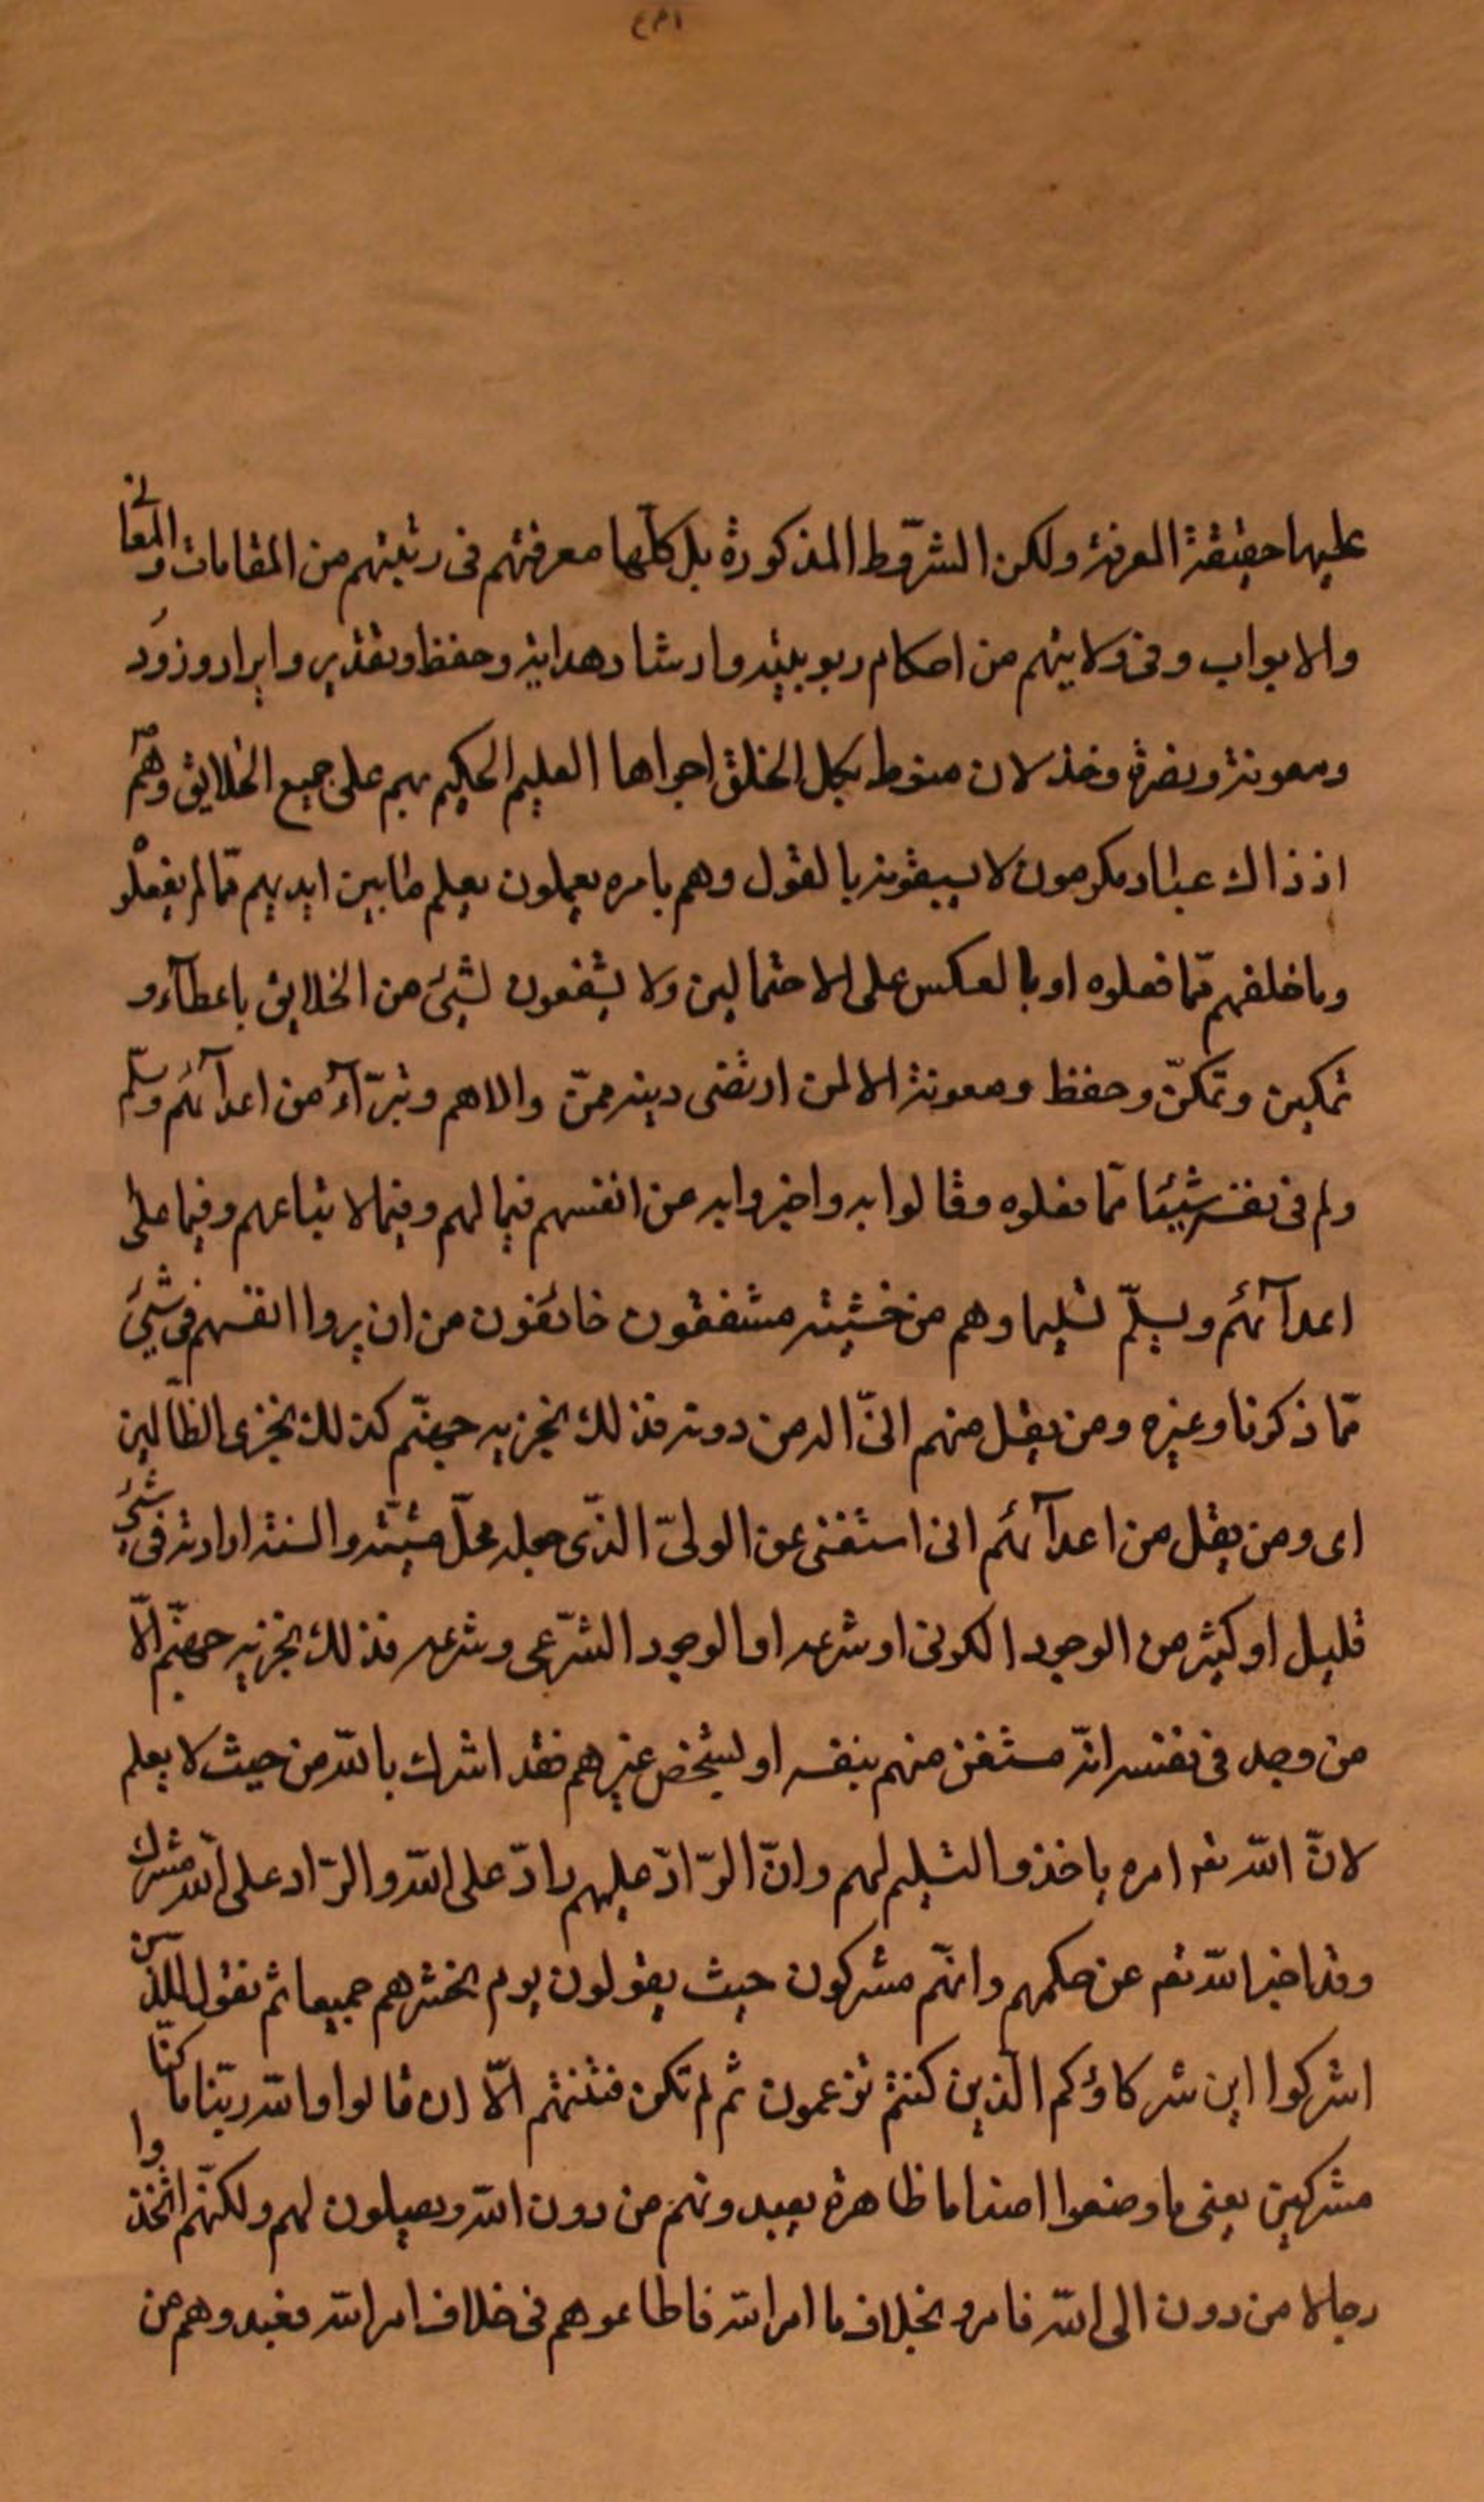 عليها حقيقة المعرفة ولكن الشروط المذكورة بل كلّها معرفتهم فى رتبتهم من المقامات والمعانى
والابواب وفى ولايتهم من احكام ربوبيته وارشاد وهداية وحفظ وتقدير وايراد وزود
ومعونة ونصرة وخذلان منوط بكل الخلق اجراها العليم الحكيم بهم على جميع الخلايق وهم
اذ ذاك عباد مكرمون لا يسبقونه بالقول وهم بامره يعملون يعلم ما بين ايديهم ممّا لم يفعلو
وما خلفهم ممّا فعلوه او بالعكس على الاحتمالين ولا يشفعون لشيئ من الخلايق باعطآء و
تمكين وتمكنّ وحفظ ومعونة الا لمن ارتضى دينه ممنّ والاهم وتبرّ آء من اعدآئهم وسلّم
ولم فى نفسه شيئا ممّا فعلوه وقالوا به واخبروا به عن انفسهم فيما لهم وفيما لاتباعهم وفيما على
اعدآئهم ويسلّم تسليما وهم من خشيته مشفقون خائفون من ان يروا انفسهم فى شيئ
ممّا ذكرنا وغيره ومن يقل منهم انىّ اله من دونه فذلك نجزيه جهنّم كذلك نجزى الظاّلمين
اى ومن يقل من اعدآئهم انى استغنى عن الولىّ الذّى جعله محلّ مشيّته والسنة ارادته فى شيئ
قليل او كثير من الوجود الكونى او شرعه او الوجود الشرّعى وشرعه فذلك نجزيه جهنّم الاّ
من وجد فى نفسه انهّ مستغن منهم بنفسه او لشخص غيرهم فقد اشرك بالله من حيث لا يعلم
لانّ الله تعر امره باخذ والتسليم لهم وانّ الرّادّ عليهم رادّ على الله والرّاد على الله مشرك
وقد اخبر الله تعر عن حكمهم وانهّم مشركون حيث يقولون يوم نحشرهم جميعا ثم نقول للذّين
اشركوا اين شركاؤكم الذّين كنتم تزعمون ثم لم تكن فتنتهم الاّ ان قالوا والله ربّنا ما كنّا
مشركين يعنى ما وضعوا اصناما ظاهرة يعبدونهم من دون الله ويصلون لهم ولكنّهم اتّخذوا
رجالا من دون الى الله فامرو بخلاف ما امر الله فاطاعوهم فى خلاف امر الله فعبدوهم من